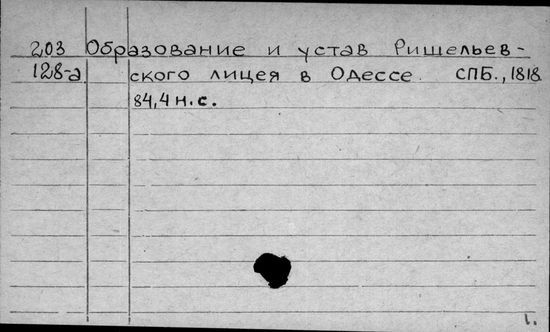 203 Образование и устав Ришельев-
128-а ского лицея в Одессе. СПБ., 1818.
84,4 н.с.
1.